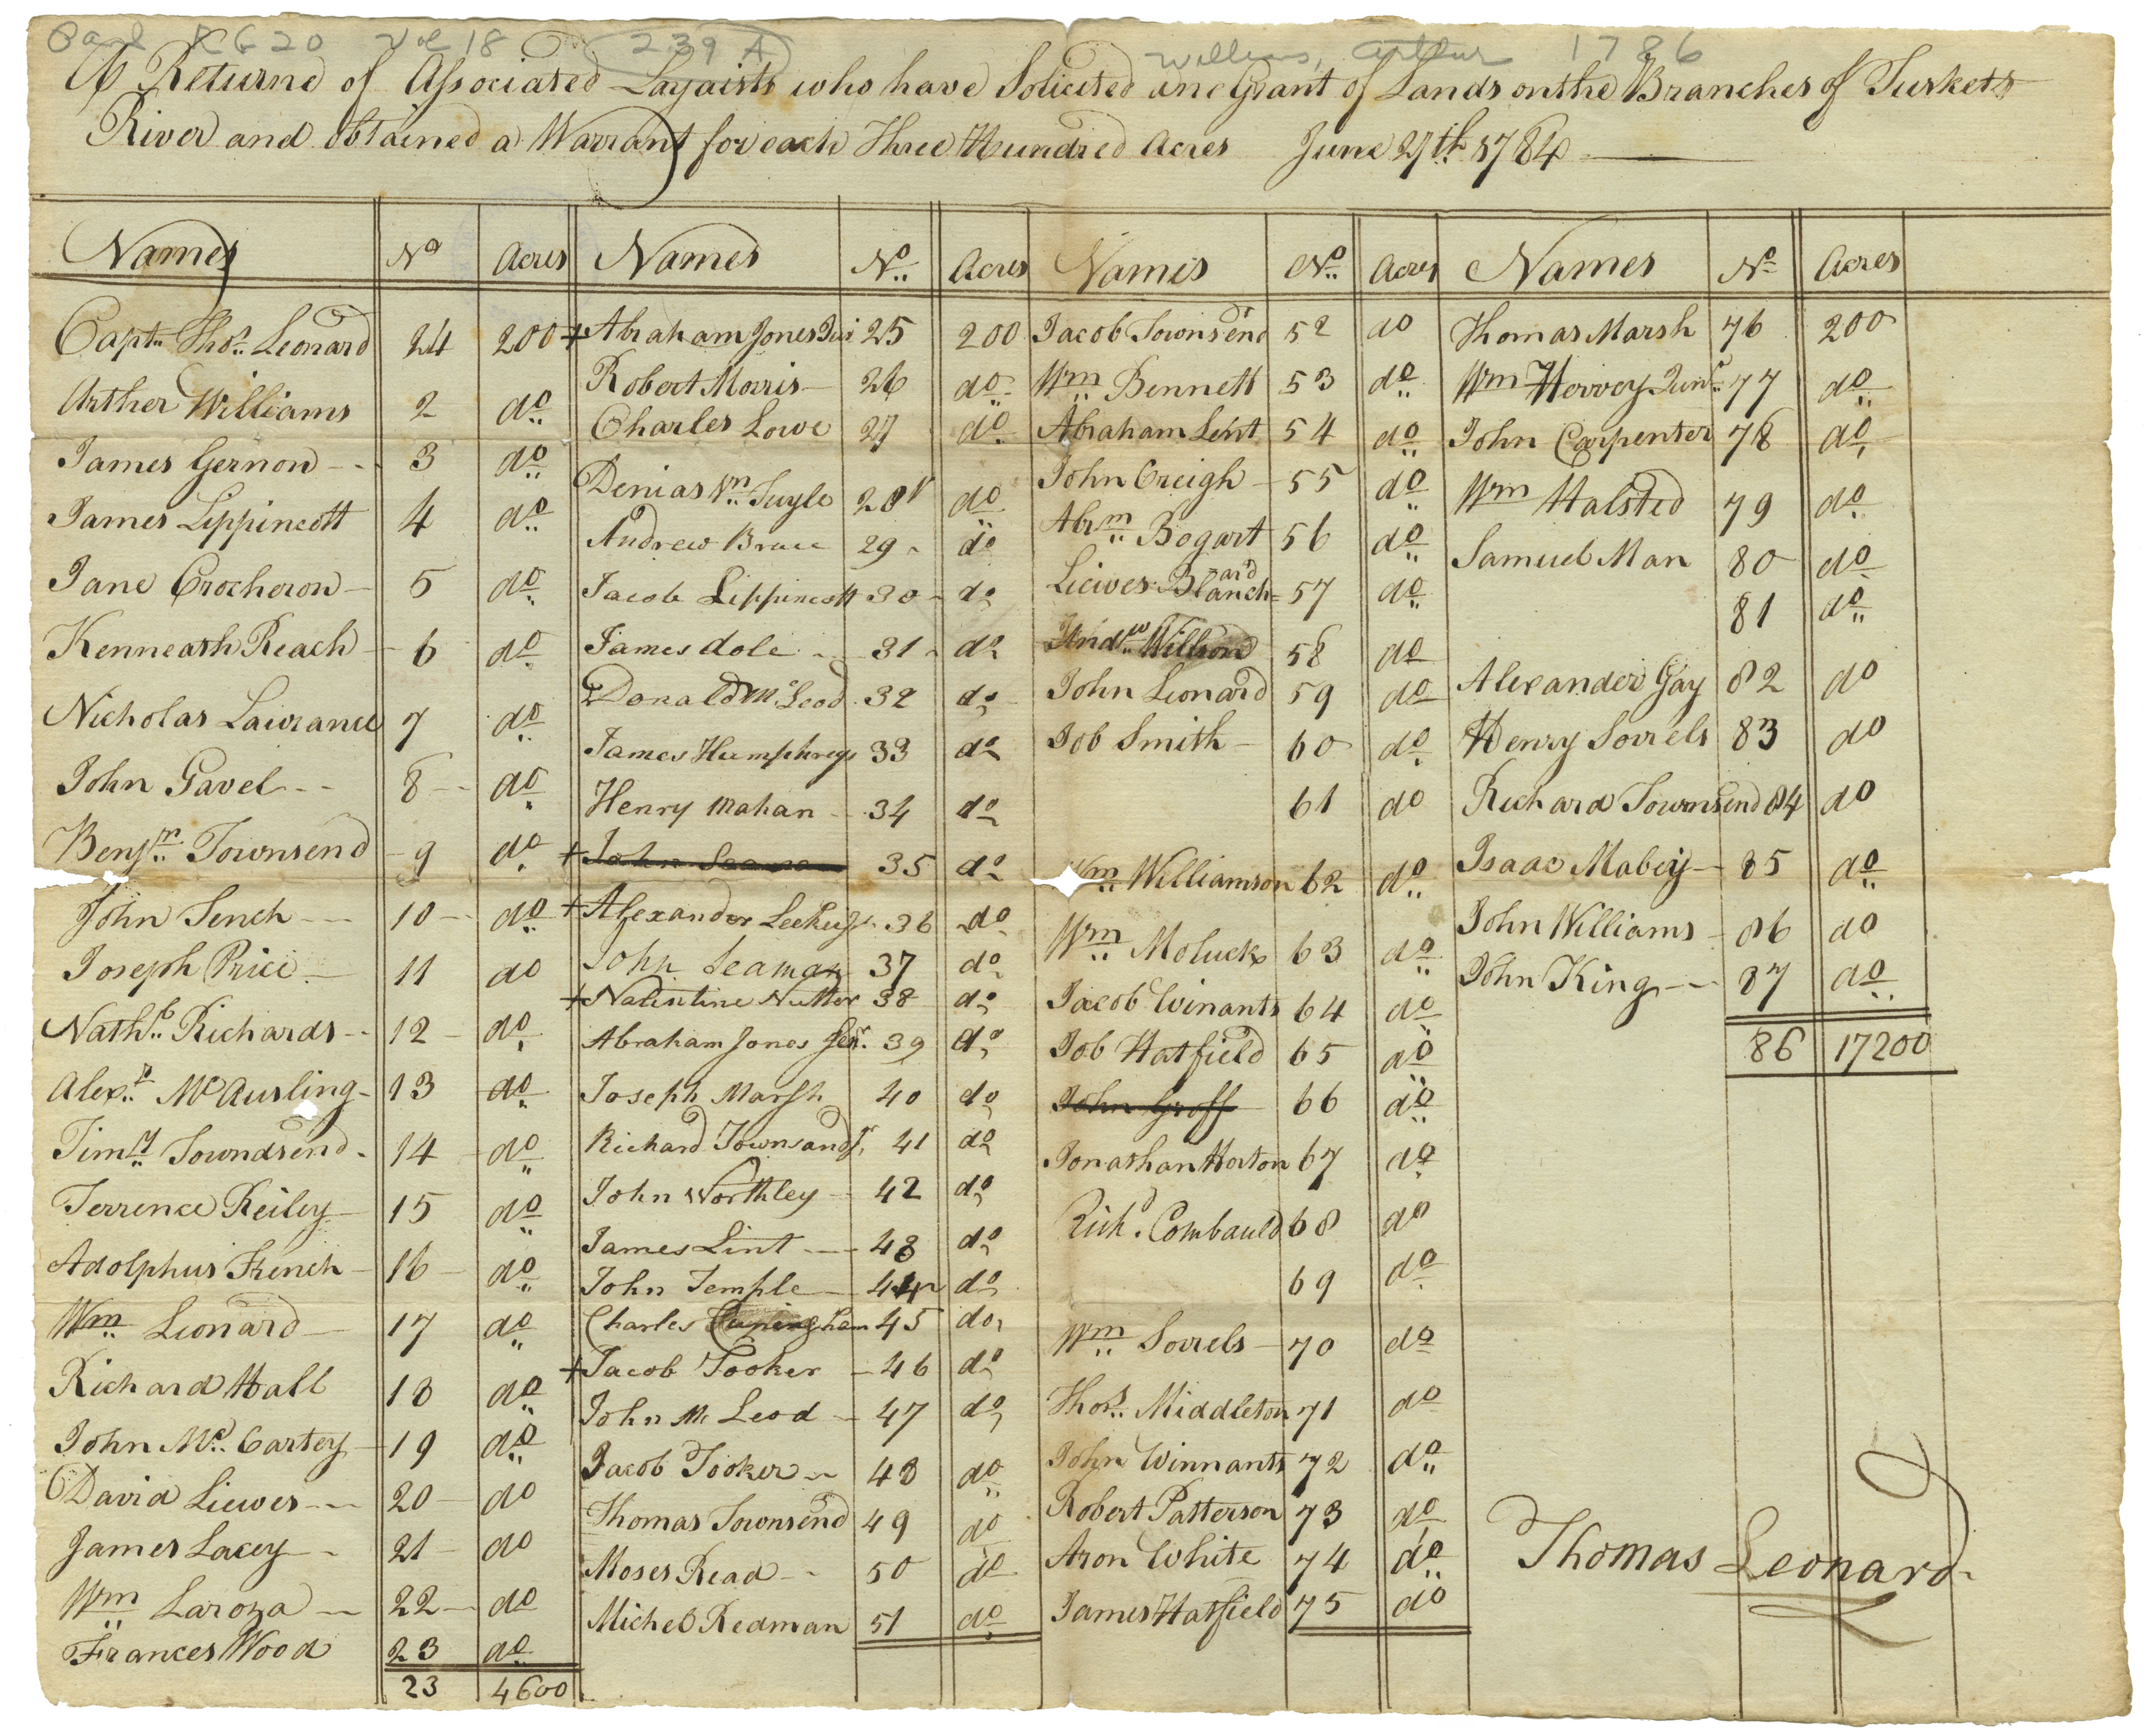 RG 20 Vol 18 239 A Williams, Arthur 1786
A Returne of Associated Loyaists who have Solicited one Grant of Lands on the Branches of Tuskets
River and obtained a Warrant for each Three Hundred Acres June 27th 1784
Names No Acres Names No Acres Names No Acres Names No Acres
Captn Thos Leonard 24 200
Arther Williams 2 do
James Gernon 3 do
James Lippincott 4 do
Jane Crocheron 5 do
Kenneath Reach 6 do
Nicholas Lawrance 7 do
John Gavel 8 do
Benjm Townsend 9 do
John Tench 10 do
Joseph Price 11 do
Nathl Richards 12 do
Alexr McAusling 13 do
Timy Towndsend 14 do
Terrence Reiley 15 do
Adolphus French 16 do
Wm Leonard 17 do
Richard Hall 18 do
John Mc Cartey 19 do
David Liewes 20 do
James Lacey 21 do
Wm Laroza 22 do
Frances Wood 23 do
23 4600
+ Abraham Jones Jur 25 200
Robert Morris 26 do
Charles Lowe 27 do
Denias Vn Tuyle 28 do
Andrew Brace 29 do
Jacob Lippincott 30 do
James dole 31 do
Donald McLeod 32 do
James Humphreys 33 do
Henry Mahan 34 do
+ John Seaman 35 do
+ Alexander Leckie Jr 36 do
John Seaman 37 do
+ Valintine Nutter 38 do
Abraham Jones Senr 39 do
Joseph Marsh 40 do
Richard Townsand Jr 41 do
John Worthley 42 do
James Lint 43 do
John Temple 44 do
Charles Cuningham 45 do
+ Jacob Tooker 46 do
John Mc Leod 47 do
Jacob Tooker 48 do
Thomas Townsend 49 do
Moses Read 50 do
Michel Redman 51 do
Jacob Townsend 52 do
Wm Bennett 53 do
Abraham Lent 54 do
John Creigh 55 do
Abrm Bogart 56 do
Liewes Blanchard 57 do
Andrw Willson 58 do
John Leonard 59 do
Job Smith 60 do
61 do
Wm Williamson 62 do
Wm Moluck 63 do
Jacob Winants 64 do
Job Hatfield 65 do
John Groff 66 do
Jonathan Horton 67 do
Richd Combauld 68 do
69 do
Wm Sorrels 70 do
Thos Middleton 71 do
John Winnants 72 do
Robert Patterson 73 do
Aron White 74 do
James Hatfield 75 do
Thomas Marsh 76 200
Wm Hervey Junr 77 do
John Carpenter 78 do
Wm Halsted 79 do
Samuel Man 80 do
81 do
Alexander Gay 82 do
Henry Sorrels 83 do
Richard Townsend 84 do
Isaac Mabey 85 do
John Williams 86 do
John King 87 do
86 17200
Thomas Leonard